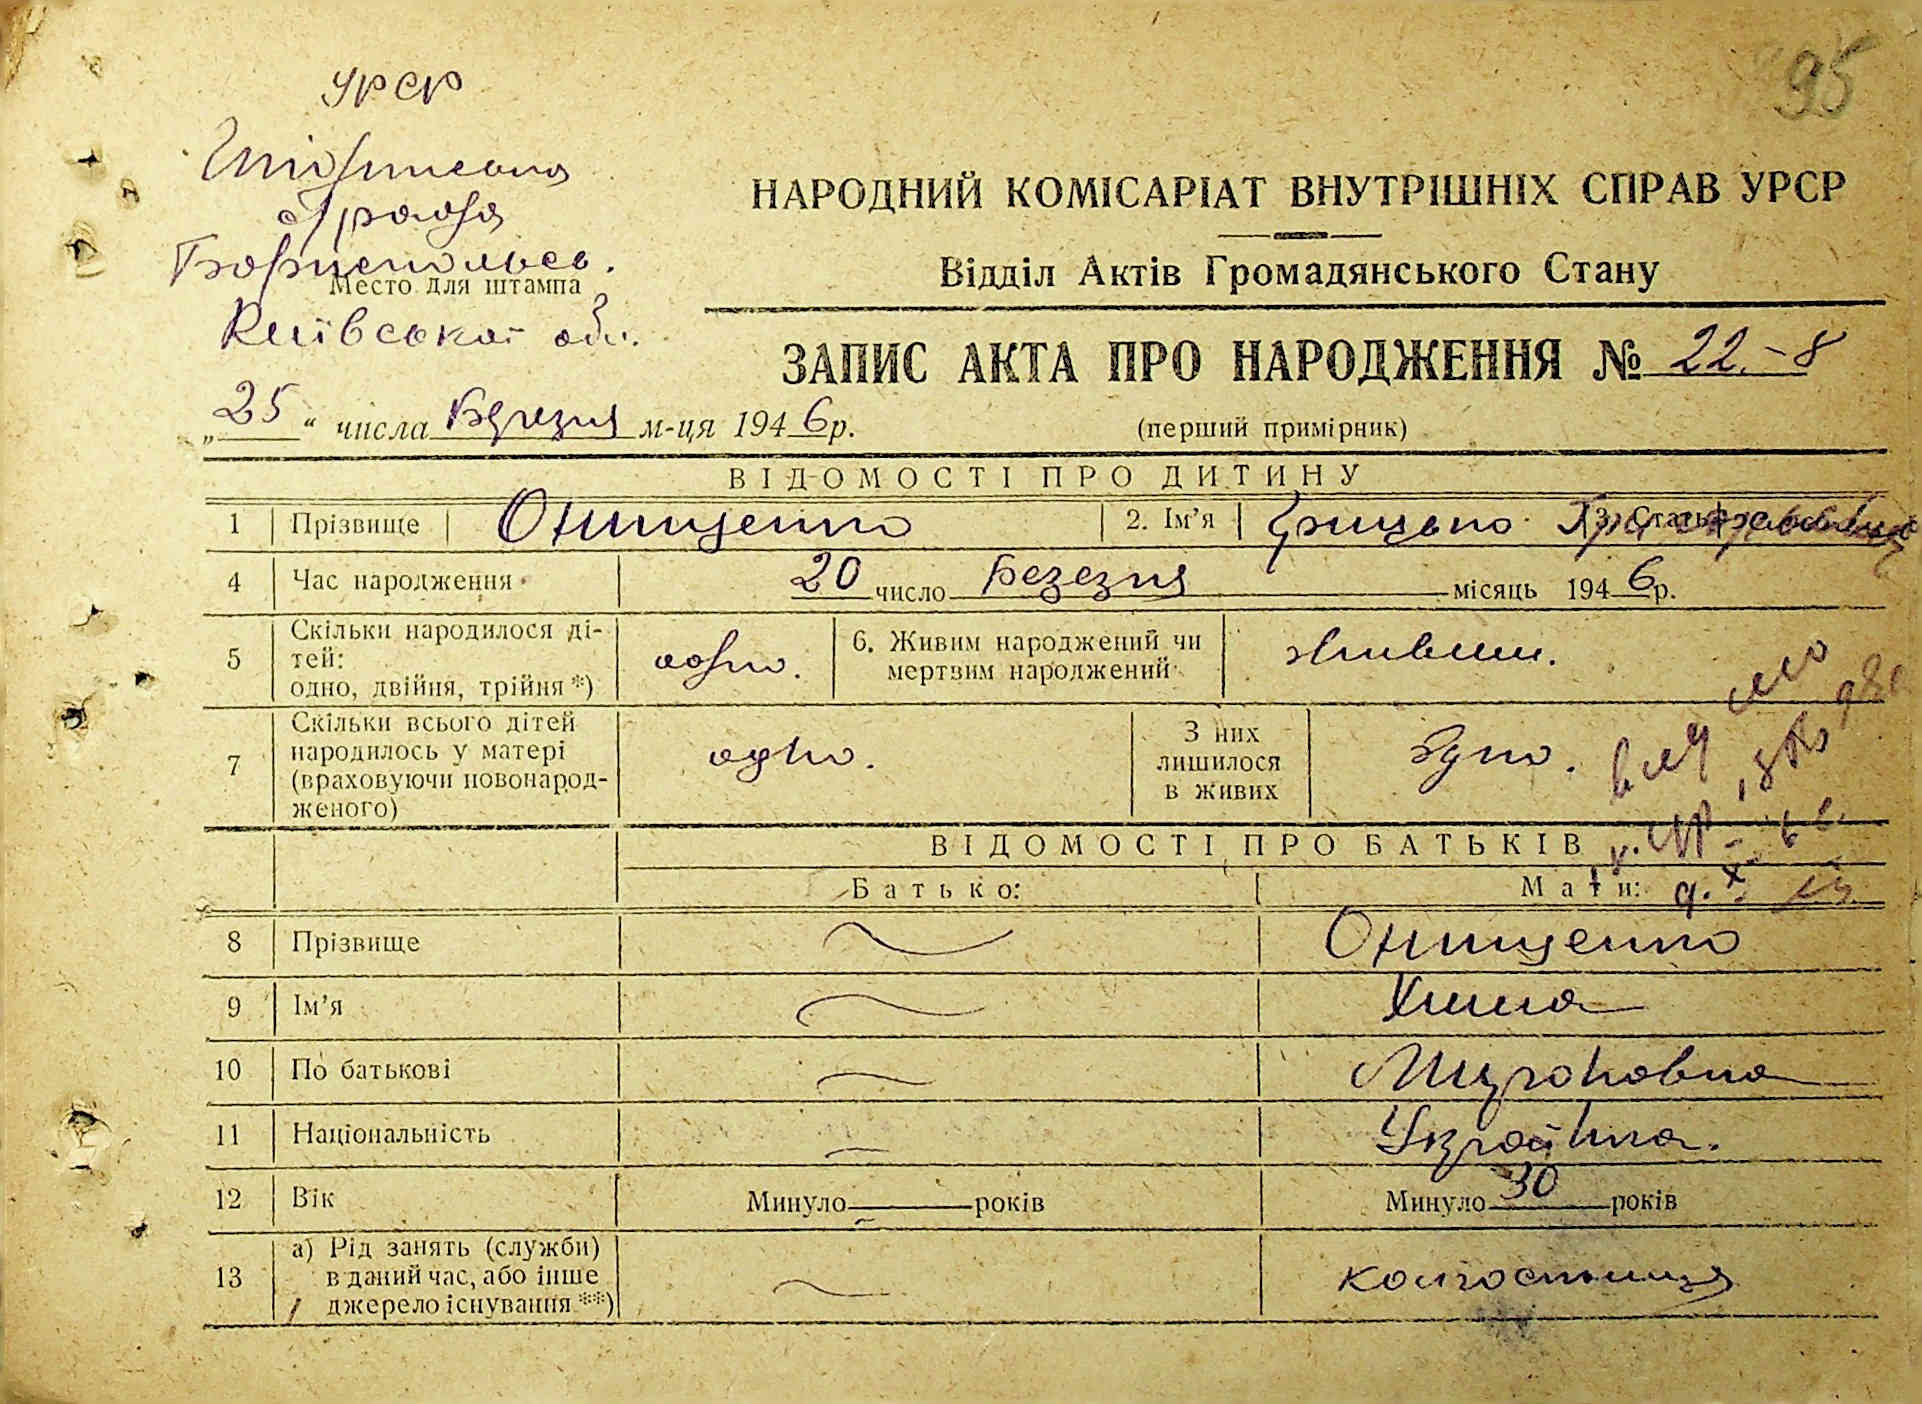 95
УРСР
Бориспольсь.
Место для штампа
Київської обл.
НАРОДНИЙ КОМІСАРІАТ ВНУТРІШНІХ СПРАВ УРСР
Відділ Актів Громадянського Стану
ЗАПИС АКТА ПРО НАРОДЖЕННЯ № 22.-8
„25“ числа Березня м-ця 1946р.
(перший примірник)
ВІДОМОСТІ ПРО ДИТИНУ
1 Прізвище Онищенко 2. Ім’я Грицько 3. Стать
4 Час народження 20 число Березня місяць 1946р.
5 Скільки народилося дітей: одно, двійня, трійня*) одно. 6. Живим народжений чи мертвим народжений живим.
7 Скільки всього дітей народилось у матері (враховуючи новонародженого) одно. З них лишилося в живих одно.
ВІДОМОСТІ ПРО БАТЬКІВ
Батько: Мати:
8 Прізвище Онищенко
9 Ім’я
10 По батькові Мироновна
11 Національність Українка.
12 Вік Минуло — років Минуло 30 років
13 а) Рід занять (служби) в даний час, або інше джерело існування**) колгоспниця